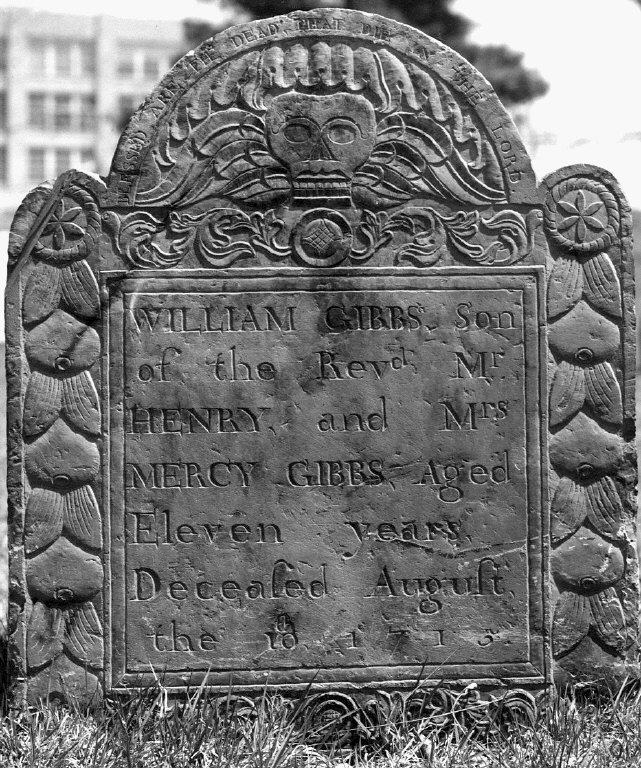 BLESSED ARE THE DEAD THAT DIE IN THE LORD
WILLIAM GIBBS, Son
of the Revd. Mr.
HENRY, and Mrs
MERCY GIBBS, Aged
Eleven years,
Deceaſed Auguſt,
the 18th 1715